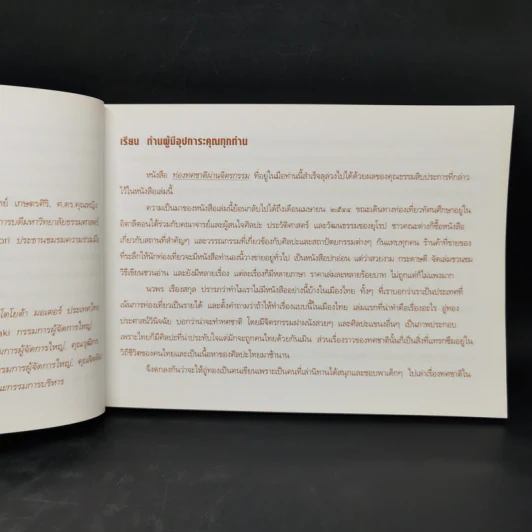 ย์ เกษตรศิริ, ศ.ดร.คุณหญิง
การบดีมหาวิทยาลัยธรรมศาสตร์
ori ประธานชมรมความร่วมมือ
โตโยต้า มอเตอร์ ประเทศไทย
aki กรรมการผู้จัดการใหญ่,
การผู้จัดการใหญ่, คุณวุฒิกร
รมการผู้จัดการใหญ่,
ณะกรรมการบริหาร
เรียน ท่านผู้มีอุปการะคุณทุกท่าน
หนังสือ ท่องทศชาติผ่านจิตรกรรม ที่อยู่ในมือท่านนี้สำเร็จลุล่วงไปได้ด้วยผลของคุณธรรมสิบประการที่กล่าว
ไว้ในหนังสือเล่มนี้
ความเป็นมาของหนังสือเล่มนี้ย้อนกลับไปได้ถึงเดือนเมษายน ขณะเดินทางท่องเที่ยวทัศนศึกษาอยู่ใน
อิตาลีตอนใต้ร่วมกับคณาจารย์และผู้สนใจศิลปะ ประวัติศาสตร์ และวัฒนธรรมของยุโรป ชาวคณะต่างก็ซื้อหนังสือ
เกี่ยวกับสถานที่สำคัญๆ และวรรณกรรมที่เกี่ยวข้องกับศิลปะและสถาปัตยกรรมต่างๆ กันแทบทุกคน ร้านค้าที่ขายของ
ที่ระลึกให้นักท่องเที่ยวจะมีหนังสือทำนองนี้วางขายอยู่ทั่วไป เป็นหนังสือปกอ่อน แต่ว่าสวยงาม กระดาษดี จัดเล่มชวนชม
วิธีเขียนชวนอ่าน และยังมีหลายเรื่อง แต่ละเรื่องก็มีหลายภาษา ราคาเล่มละหลายร้อยบาท ไม่ถูกแต่ก็ไม่แพงมาก
นวพร เรืองสกุล ปรารภว่าทำไมเราไม่มีหนังสืออย่างนี้บ้างในเมืองไทย ทั้งๆ ที่เราบอกว่าเราเป็นประเทศที่
เน้นการท่องเที่ยวเป็นรายได้ และตั้งคำถามว่าถ้าให้ทำเรื่องแบบนี้ในเมืองไทย เล่มแรกที่น่าทำคือเรื่องอะไร อู่ทอง
ประศาสน์วินิจฉัย บอกว่าน่าจะทำทศชาติ โดยมีจิตรกรรมฝาผนังสวยๆ และศิลปะแขนงอื่นๆ เป็นภาพประกอบ
เพราะไทยก็มีศิลปะที่น่าประทับใจแต่มักจะถูกคนไทยด้วยกันเมิน ส่วนเรื่องราวของทศชาตินั้นก็เป็นสิ่งที่แทรกซึมอยู่ใน
วิถีชีวิตของคนไทยและเป็นเนื้อหาของศิลปะไทยมาช้านาน
จึงตกลงกันว่าจะให้อู่ทองเป็นคนเขียนเพราะเป็นคนที่เล่านิทานได้สนุกและชอบพาเด็กๆ ไปเล่าเรื่องทศชาติใน